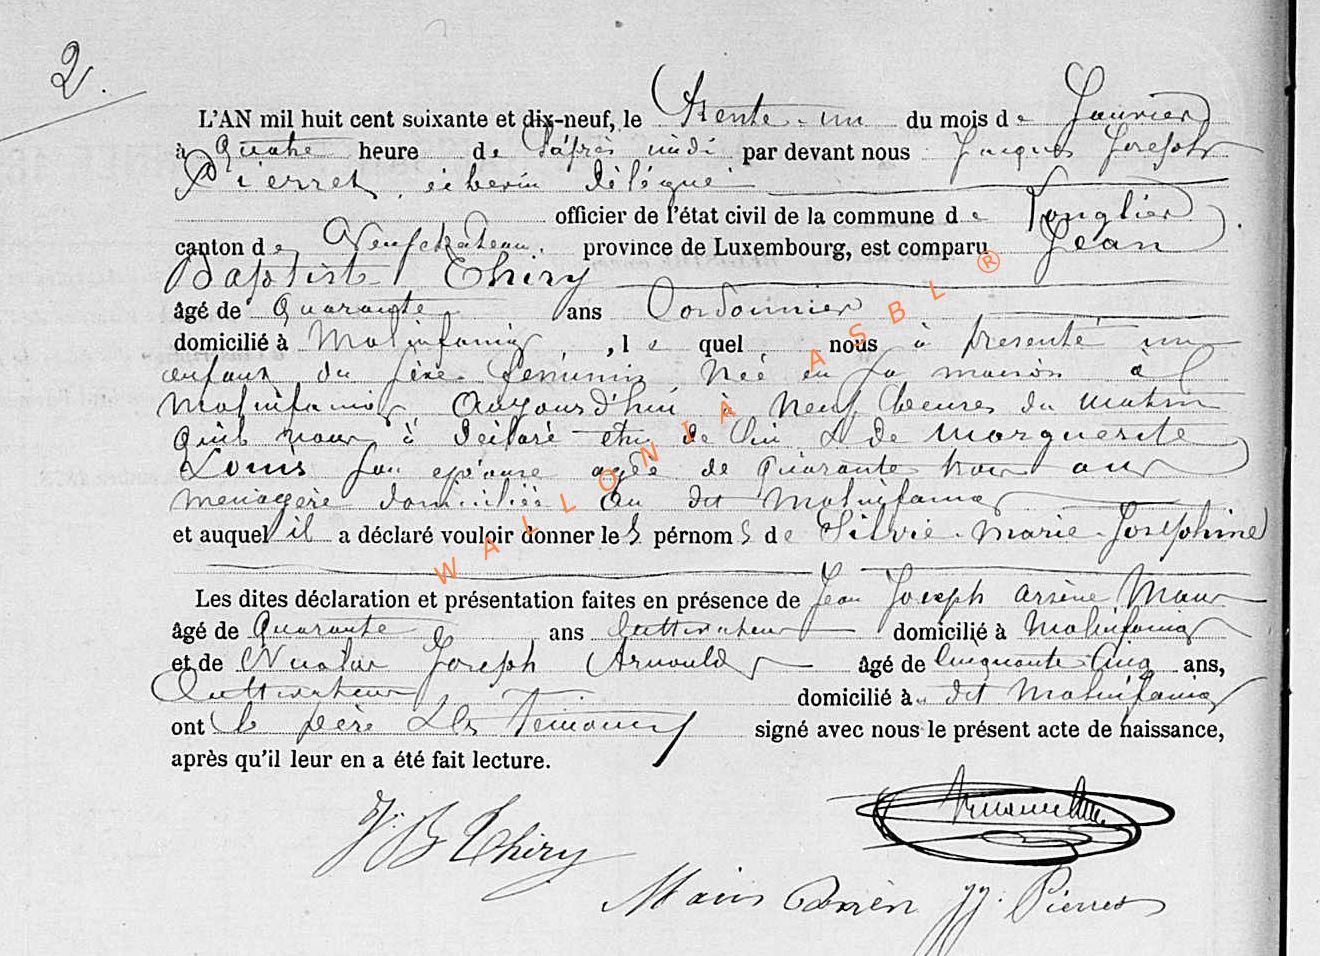 2.
L'AN mil huit cent soixante et dix-neuf, le Trente-un du mois de Janvier
à Quatre heure de l'après midi par devant nous Jacques Joseph
Pierret, échevin délégué
officier de l'état civil de la commune de Longlier
canton de Neufchateau. province de Luxembourg, est comparu Jean
Baptiste Thiry
âgé de Quarante ans Cordonnier
domicilié à Molinfaing, le quel nous à présenté un
enfant du sexe féminin, Née en sa maison à
Molinfaing Aujourd'hui à Neuf heures du matin
qu'il nous à déclaré etre de lui & de Marguerite
Louis son épouse agée de Quarante trois ans
menagère domiciliée au dit Molinfaing
et auquel il a déclaré vouloir donner les pérnoms de Silvie-Marie-Joséphine
Les dites déclaration et présentation faites en présence de Jean Joseph Arsène
âgé de Quarante ans Cultivateur domicilié à Molinfaing
et de Joseph Arnould âgé de Cinquante Cinq ans,
Cultivateur domicilié à dit Molinfaing
ont le père & les témoins signé avec nous le présent acte de naissance,
après qu'il leur en a été fait lecture.
J. B Thiry
JJ. Pierret
WALLONIA ASBL ®